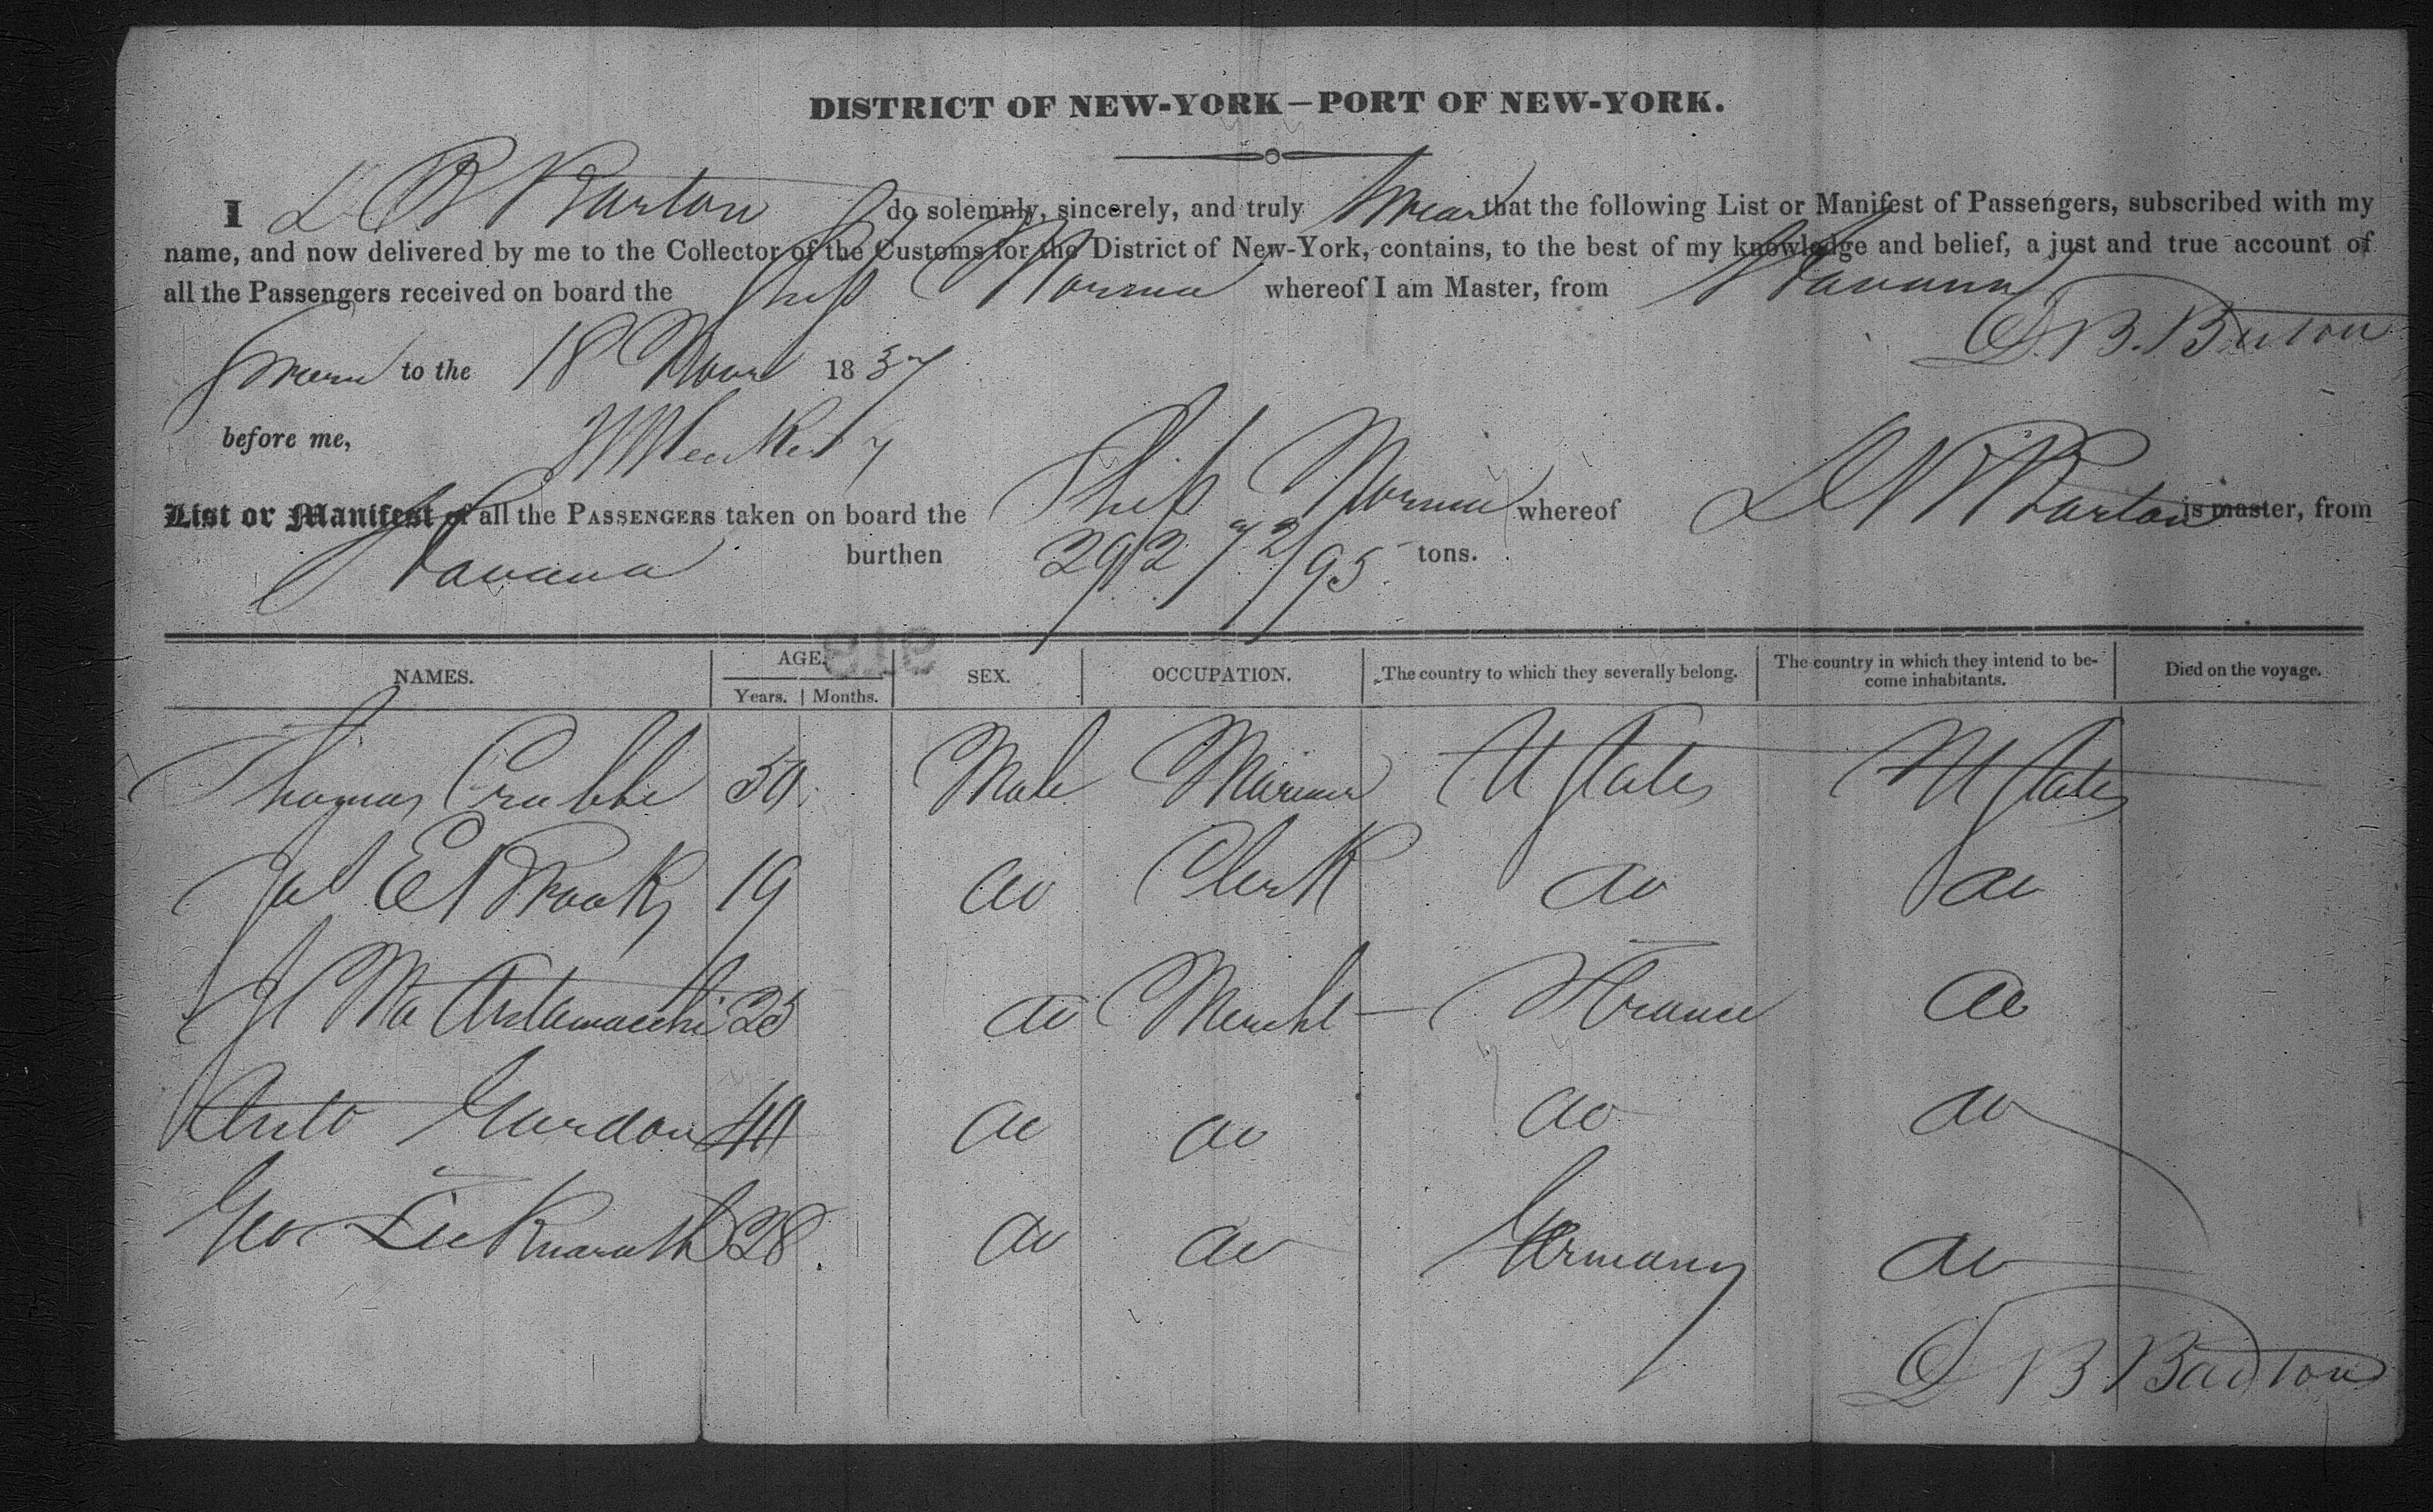 DISTRICT OF NEW-YORK—PORT OF NEW-YORK.
I D B Barton do solemnly, sincerely, and truly swear that the following List or Manifest of Passengers, subscribed with my
name, and now delivered by me to the Collector of the Customs for the District of New-York, contains, to the best of my knowledge and belief, a just and true account of
all the Passengers received on board the Ship Norma whereof I am Master, from Havana
D. B. Barton
Sworn to the 18 Novr 1837
before me,
List or Manifest of all the PASSENGERS taken on board the Ship Norma whereof D B Barton is master, from
Havana burthen 292 72/95 tons.
NAMES. AGE. SEX. OCCUPATION. The country to which they severally belong. The country in which they intend to be-
come inhabitants. Died on the voyage.
Years. Months.
Thomas Crabbe 50 Male Mariner U States U States
Jas E Brooks 19 do Clerk do do
J Ma Antamacchi 25 do Mercht France do
Anto Gurdon 40 do do do do
Geo 28 do do Germany do
D B Barton